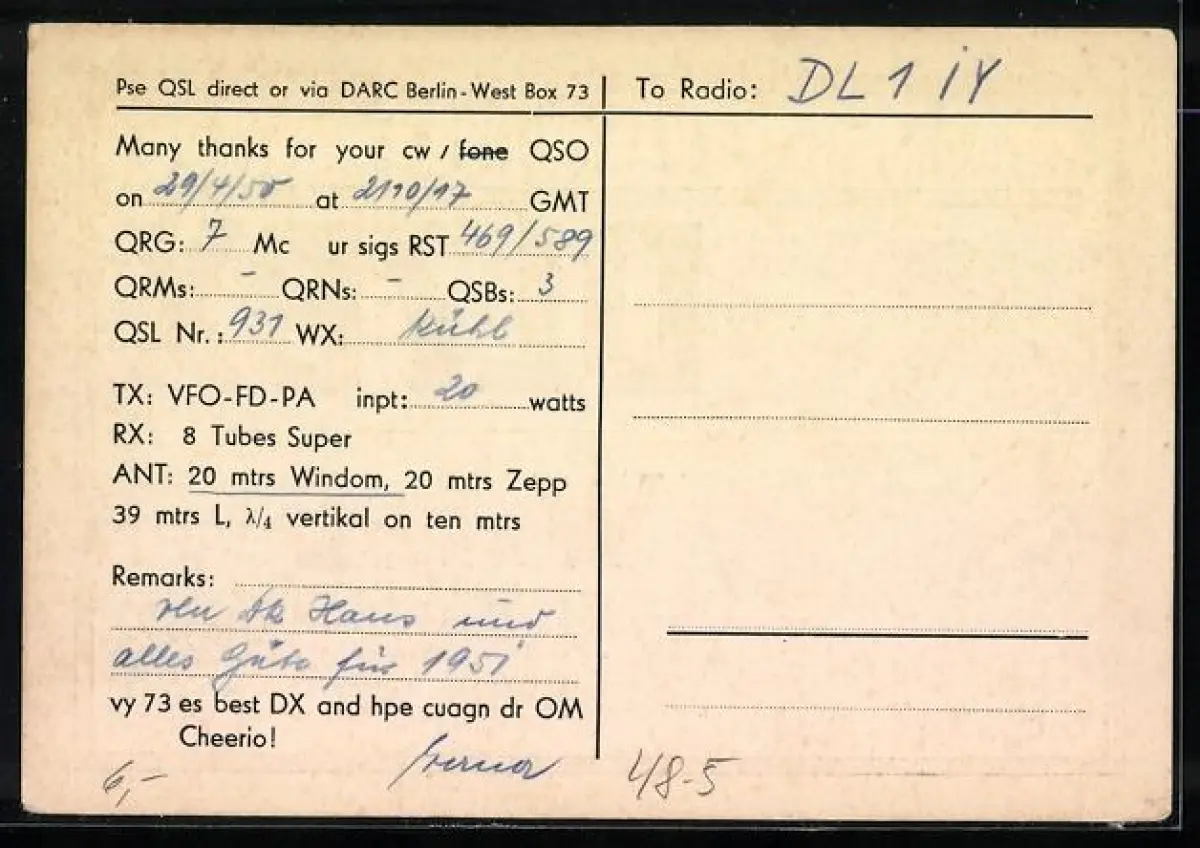 Pse QSL direct or via DARC Berlin-West Box 73
To Radio: DL1IY
Many thanks for your cw / fone QSO
on 29/4/50 at 2110/17 GMT
QRG: 7 Mc ur sigs RST 469/589
QRMs: - QRNs: - QSBs: 3
QSL Nr.: 931 WX: kühl
TX: VFO-FD-PA inpt: 20 watts
RX: 8 Tubes Super
ANT: 20 mtrs Windom, 20 mtrs Zepp
39 mtrs L, λ/4 vertikal on ten mtrs
Remarks:
Hans und
alles Gute für 1951
vy 73 es best DX and hpe cuagn dr OM
Cheerio!
Werner
6,-
48-5